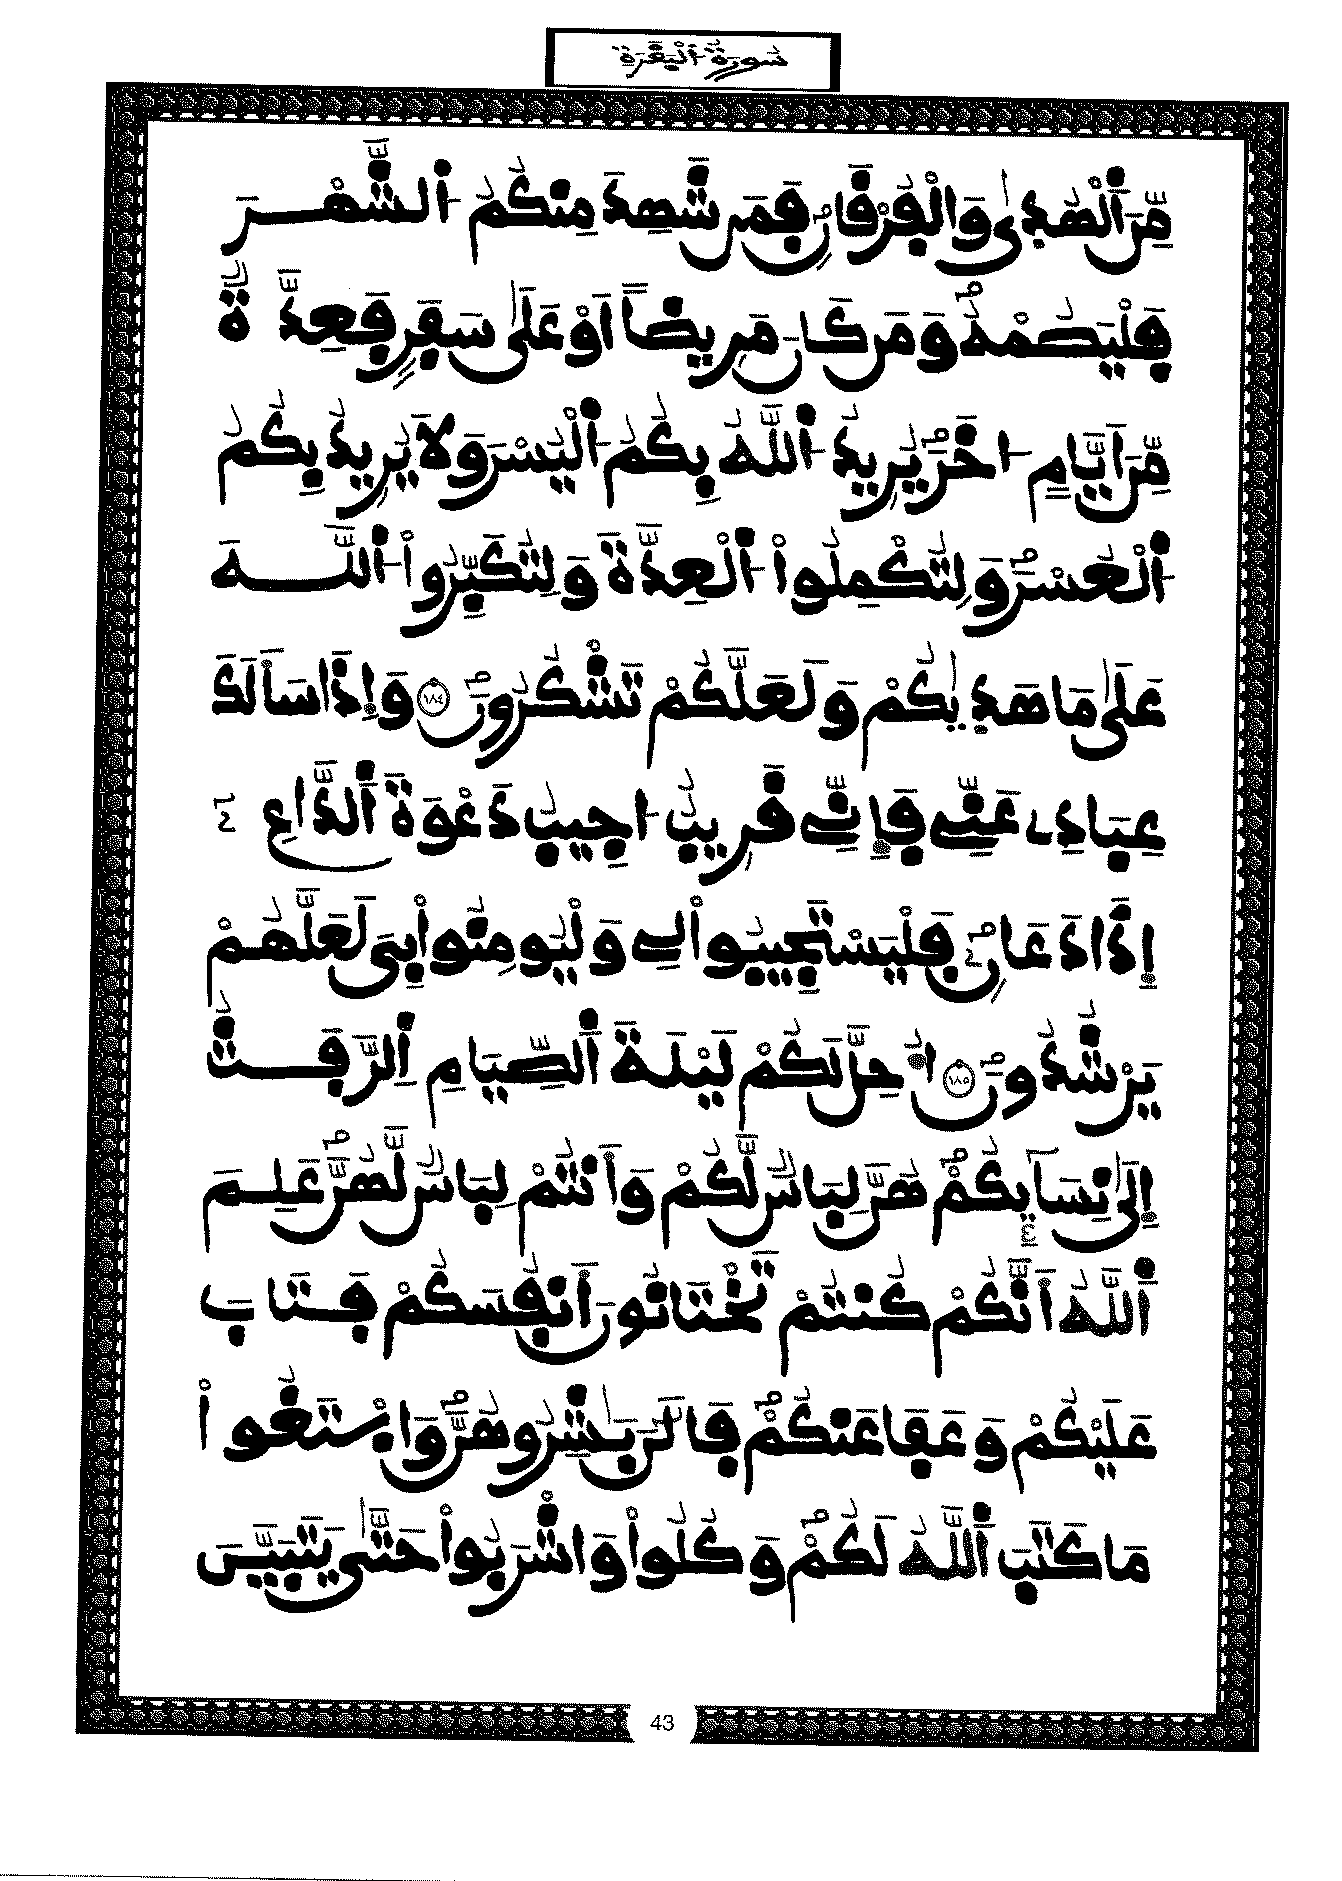 سُورَةُ اَ۬لْبَقَرَةِ
مِّنَ اَ۬لْهُد۪ىٰ وَالْفُرْقَانِۖ فَمَن شَهِدَ مِنكُمُ اُ۬لشَّهْرَ
فَلْيَصُمْهُۖ وَمَن كَانَ مَرِيضاً اَوْ عَلَىٰ سَفَرٖ فَعِدَّةٞ
مِّنَ اَيَّامٍ ا۟خَرَۖ يُرِيدُ اُ۬للَّهُ بِكُمُ اُ۬لْيُسْرَ وَلَا يُرِيدُ بِكُمُ
اُ۬لْعُسْرَۖ وَلِتُكْمِلُواْ اُ۬لْعِدَّةَ وَلِتُكَبِّرُواْ اُ۬للَّهَ
عَلَىٰ مَا هَد۪يٰكُمْ وَلَعَلَّكُمْ تَشْكُرُونَۖ ١٨٤ وَإِذَا سَأَلَكَ
عِبَادِے عَنِّے فَإِنِّے قَرِيبٌ ا۟جِيبُ دَعْوَةَ اَ۬لدَّاعِۦ
إِذَا دَعَانِۦۖ فَلْيَسْتَجِيبُواْ لِے وَلْيُومِنُواْ بِي لَعَلَّهُمْ
يَرْشُدُونَۖ ١٨٥ أُحِلَّ لَكُمْ لَيْلَةَ اَ۬لصِّيَامِ اِ۬لرَّفَثُ
إِلَىٰ نِسَآئِكُمْۖ هُنَّ لِبَاسٞ لَّكُمْ وَأَنتُمْ لِبَاسٞ لَّهُنَّۖ عَلِمَ
اَ۬للَّهُ أَنَّكُمْ كُنتُمْ تَخْتَانُونَ أَنفُسَكُمْ فَتَابَ
عَلَيْكُمْ وَعَفَا عَنكُمْۖ فَالَٰنَ بَٰشِرُوهُنَّۖ وَابْتَغُواْ
مَا كَتَبَ اَ۬للَّهُ لَكُمْۖ وَكُلُواْ وَاشْرَبُواْ حَتَّىٰ يَتَبَيَّنَ
43